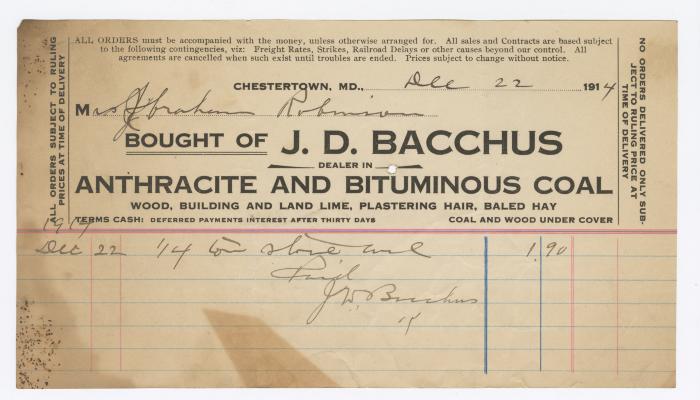 ALL ORDERS must be accompanied with the money, unless otherwise arranged for. All sales and Contracts are based subject
to the following contingencies, viz: Freight Rates, Strikes, Railroad Delays or other causes beyond our control. All
agreements are cancelled when such exist until troubles are ended. Prices subject to change without notice.
ALL ORDERS SUBJECT TO RULING
PRICES AT TIME OF DELIVERY
NO ORDERS DELIVERED ONLY SUB-
JECT TO RULING PRICE AT
TIME OF DELIVERY
CHESTERTOWN, MD., Dec 22 1914
Mrs Abraham Robinson
BOUGHT OF J. D. BACCHUS
DEALER IN
ANTHRACITE AND BITUMINOUS COAL
WOOD, BUILDING AND LAND LIME, PLASTERING HAIR, BALED HAY
TERMS CASH: DEFERRED PAYMENTS INTEREST AFTER THIRTY DAYS COAL AND WOOD UNDER COVER
Dec 22 1/4 ton stove coal 1.90
Paid
J. W. Bacchus